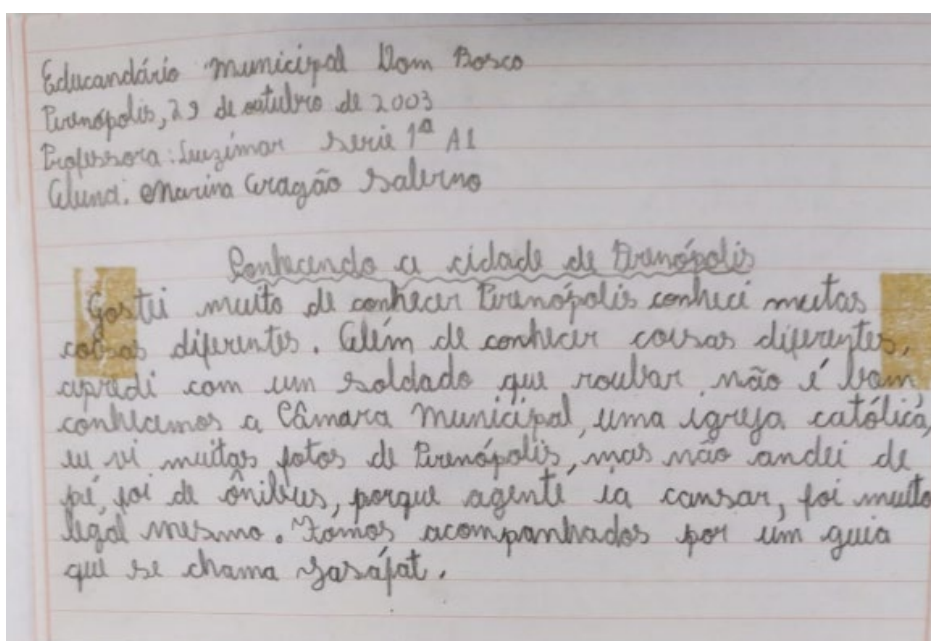 Educandário Municipal Dom Bosco
Pirenópolis, 29 de outubro de 2003
Professora: Luzimar serie 1ª A1
Aluna: Marina Aragão Salerno
Conhecendo a cidade de Pirenópolis
Gostei muito de conhecer Pirenópolis conheci muitas
coisas diferentes. Além de conhecer coisas diferentes,
apredi com um soldado que roubar não é bom,
conhecemos a Câmara Municipal, uma igreja católica,
eu vi muitas fotos de Pirenópolis, mas não andei de
pé, foi de ônibus, porque agente ia cansar, foi muito
legal mesmo. Fomos acompanhados por um guia
que se chama